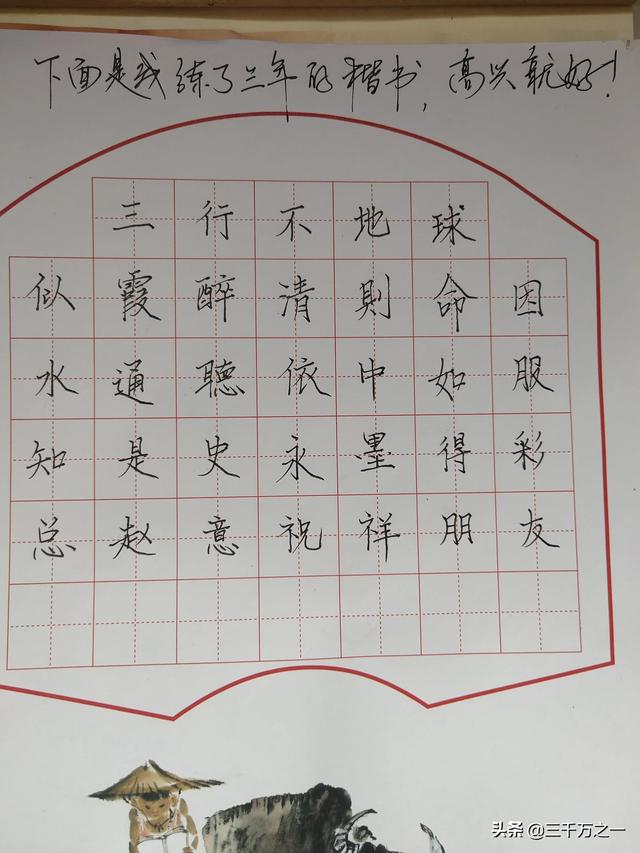 下面是我练了三年的楷书，高兴就好！
三行不地球
似霞醉清則命因
水通聽依中如服
知是史永墨得彩
总赵意祝祥朋友
头条 @三千万之一